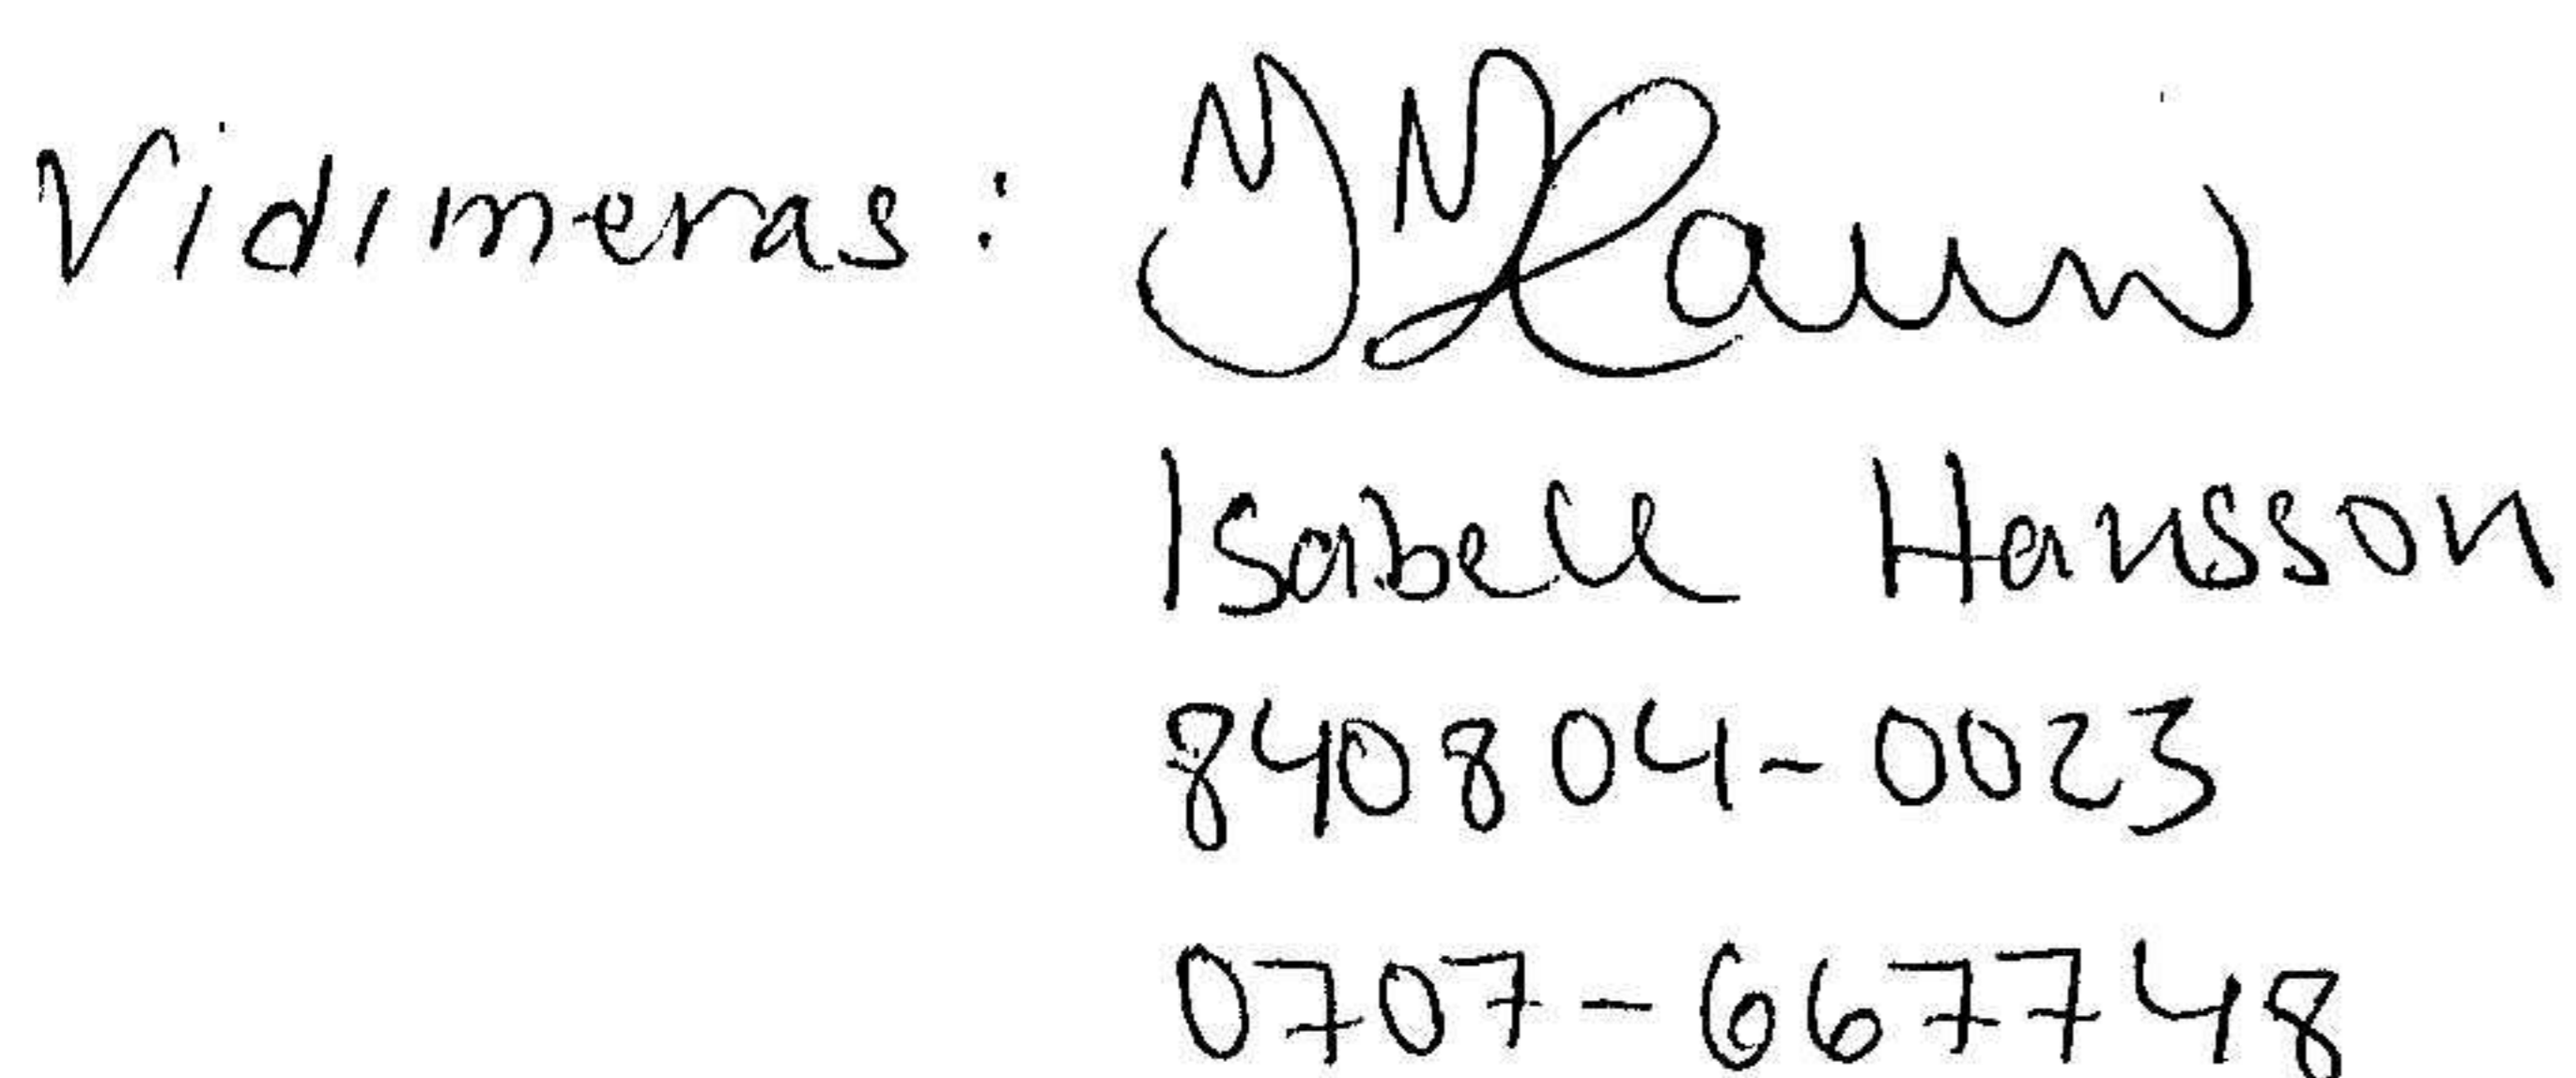 Vidimeras:
Isabell Hansson
840804-0023
0707-667748